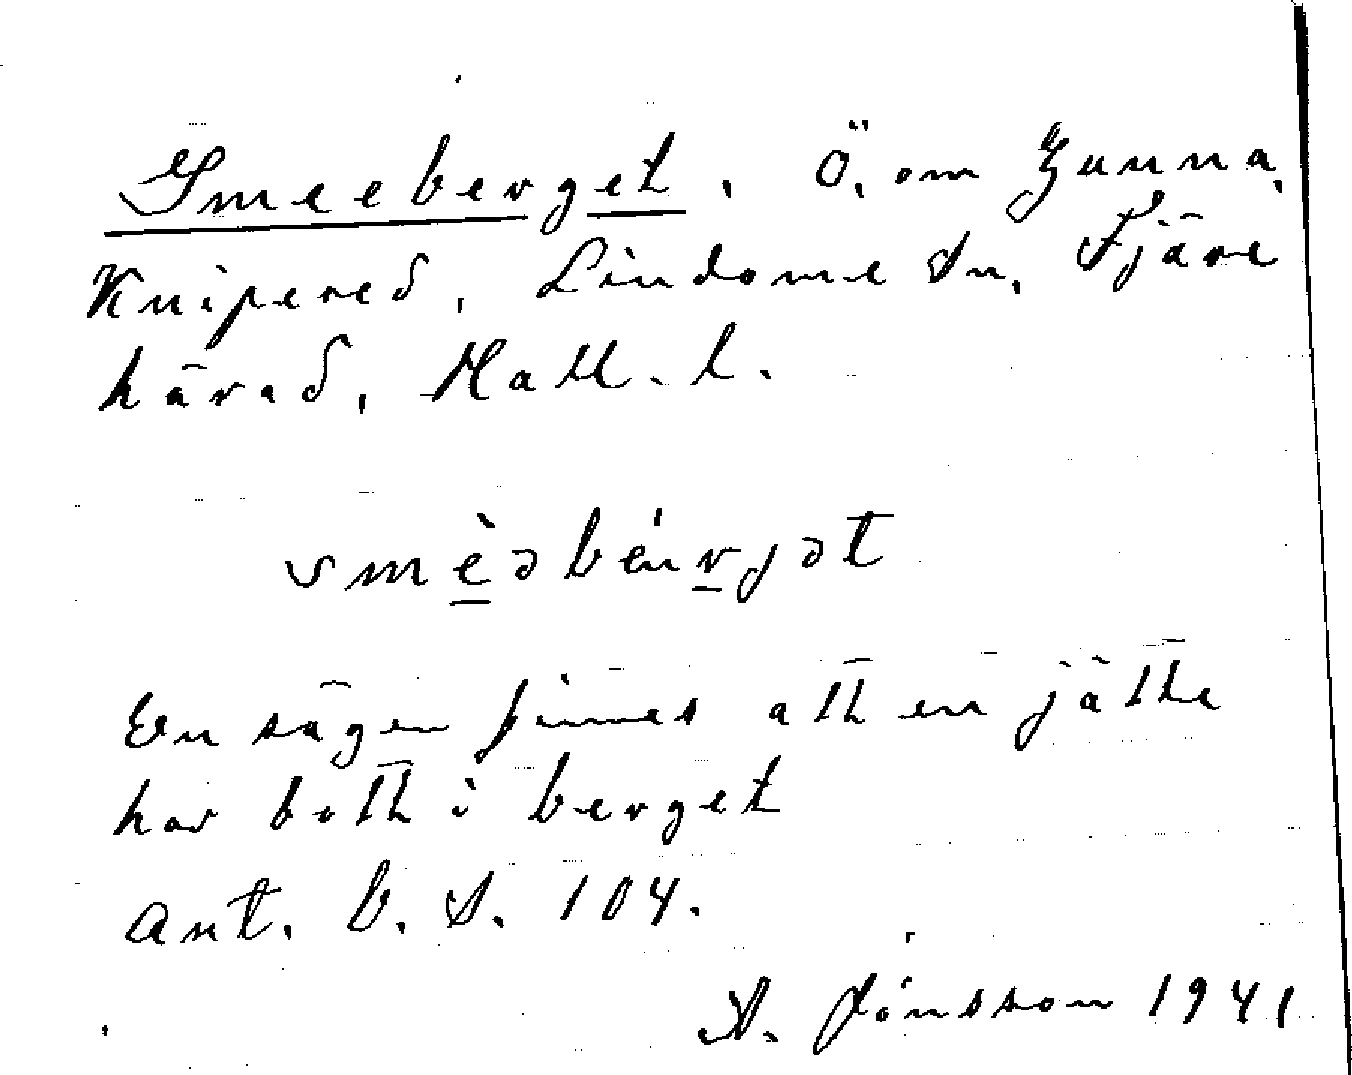 Smeeberget. Ö. om Gunna,
Knipered, Lindome sn, Fjäre
härad, Hall. l.
smèəbéŕrjət
En sägen finnes att en jätte
har bott i berget
Ant. b. S. 104.
A. Jonsson 1941